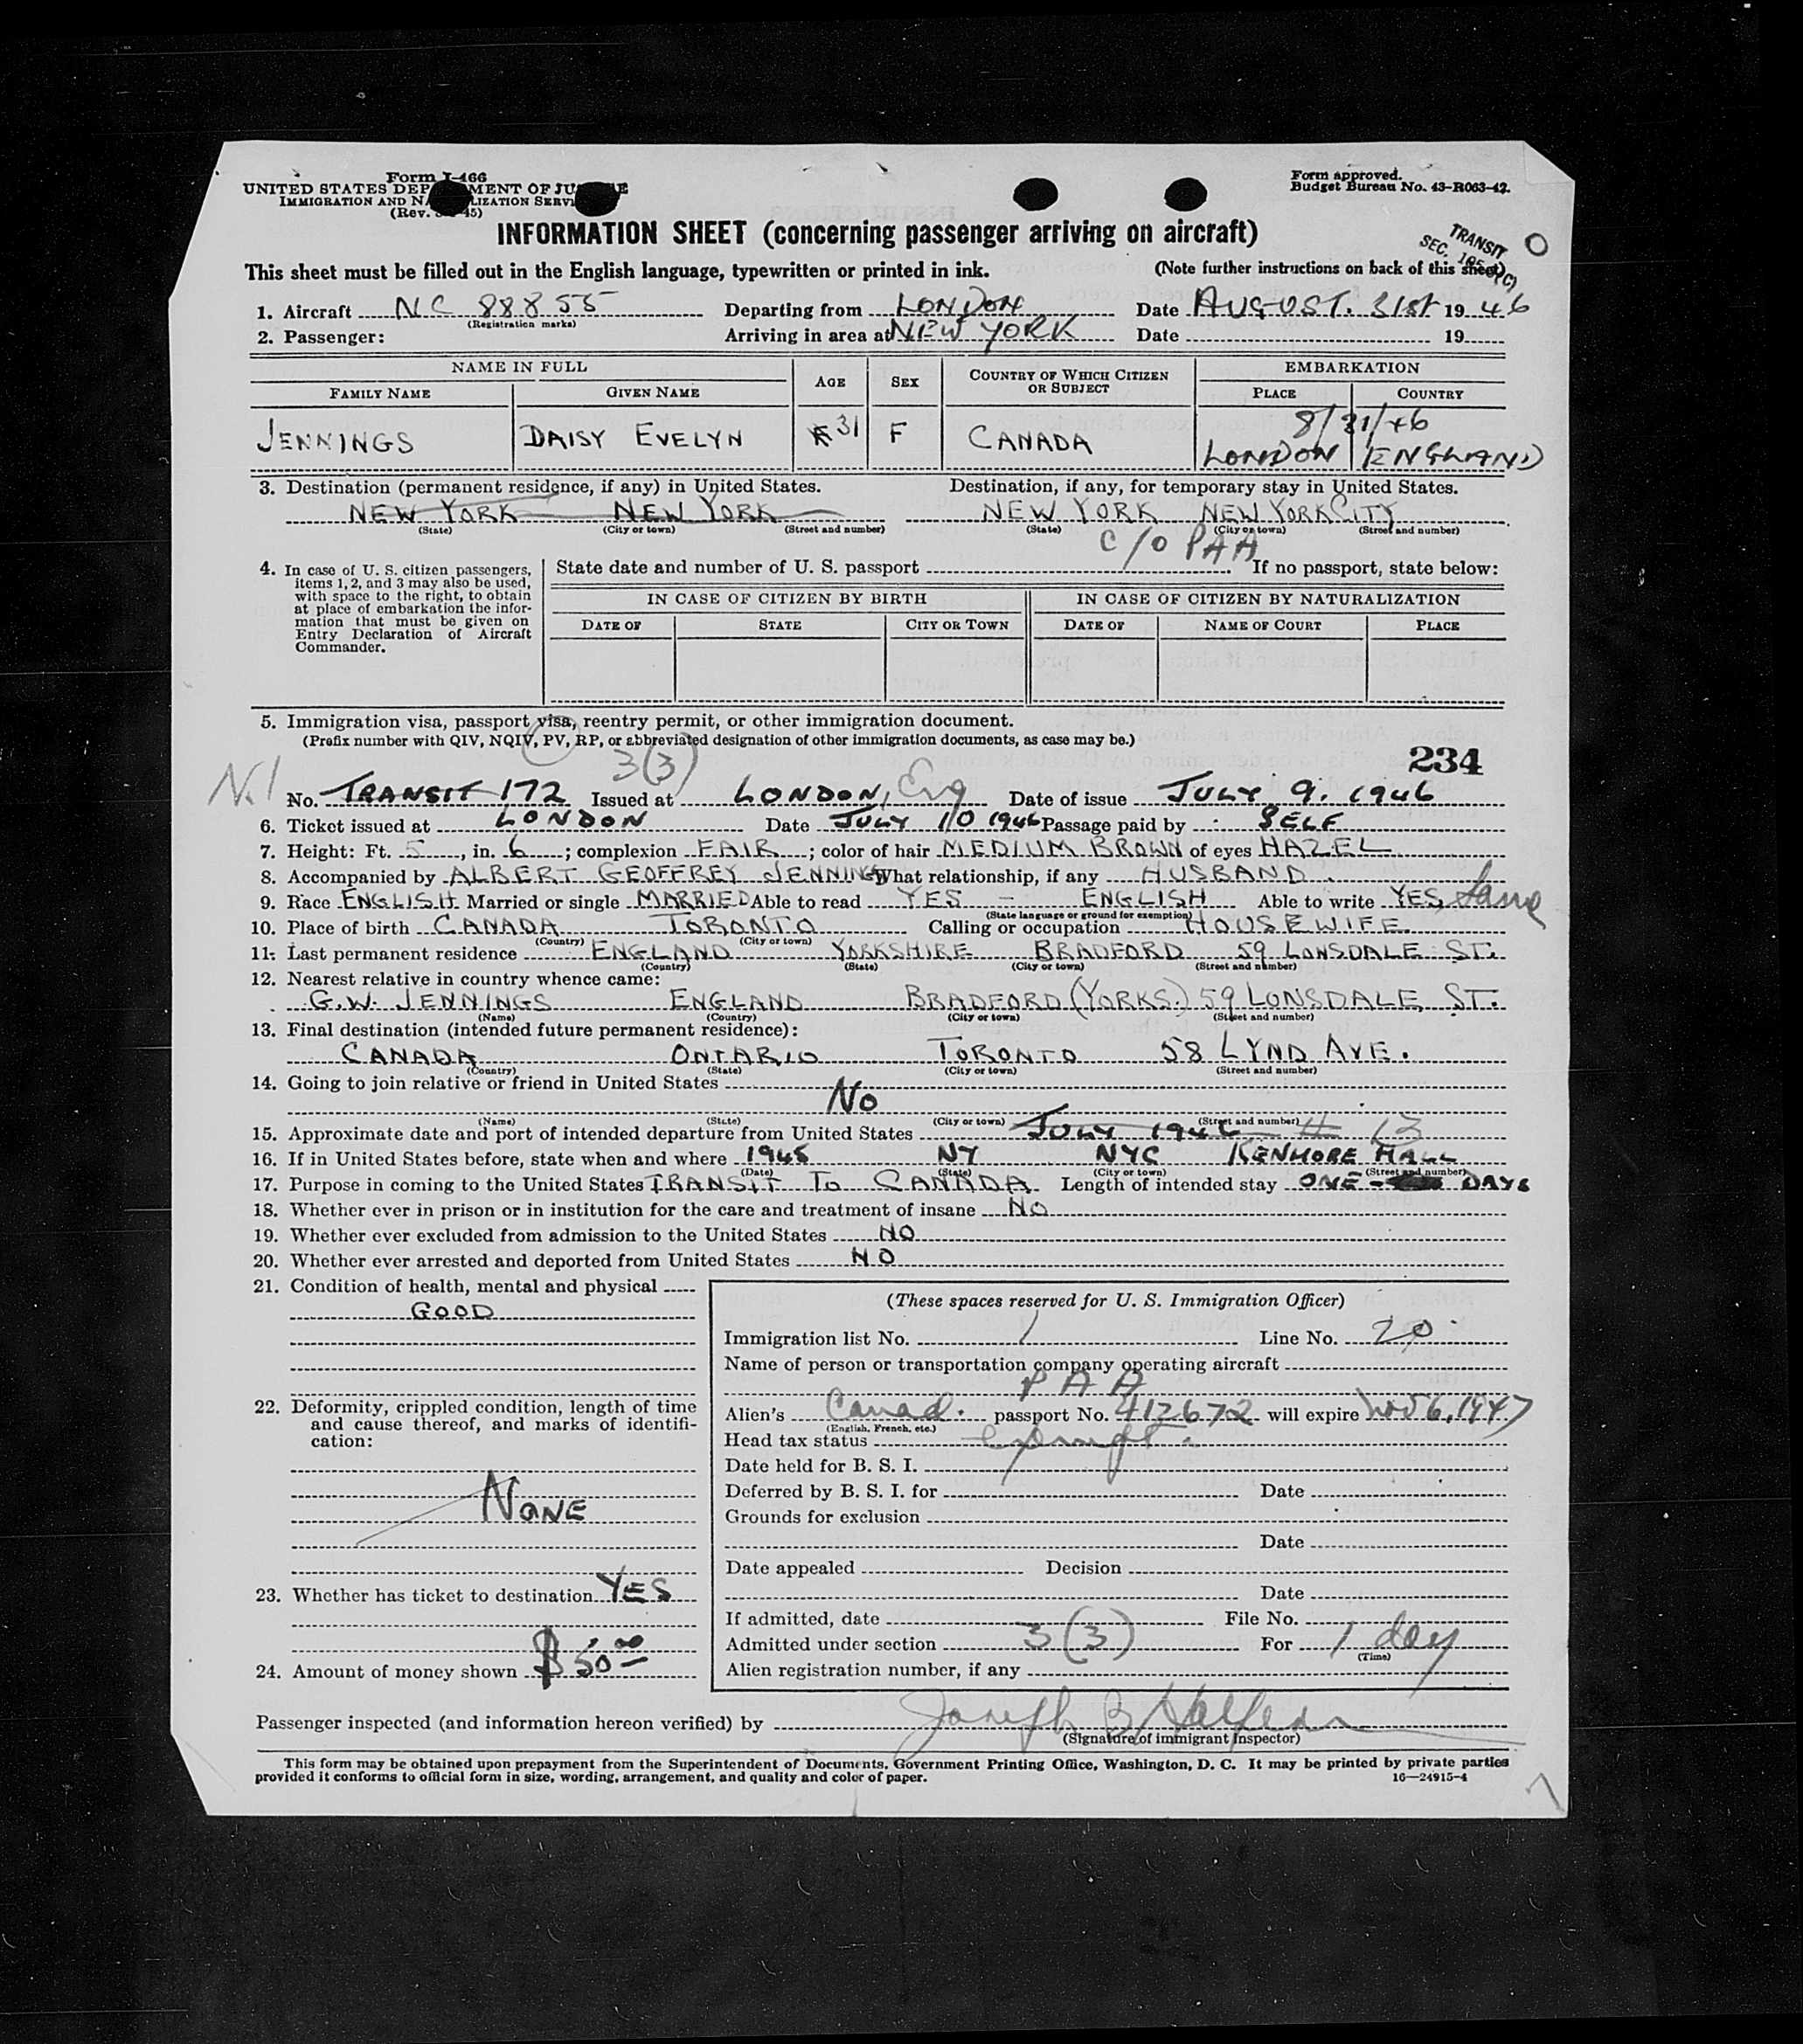 Form I-466
UNITED STATES DEP MENT OF JU E
IMMIGRATION AND N LIZATION SERVI
(Rev. 45)
Form approved.
Budget Bureau No. 43-R063-42.
INFORMATION SHEET (concerning passenger arriving on aircraft)
TRANSIT
SEC. (C)
This sheet must be filled out in the English language, typewritten or printed in ink. (Note further instructions on back of this sheet)
1. Aircraft NC 88855 Departing from LONDON Date AUGUST. 31st 1946
(Registration marks)
2. Passenger: Arriving in area at NEW YORK Date 19
NAME IN FULL AGE SEX COUNTRY OF WHICH CITIZEN OR SUBJECT EMBARKATION
FAMILY NAME GIVEN NAME PLACE COUNTRY
8/31/46
JENNINGS DAISY EVELYN 31 F CANADA LONDON ENGLAND
3. Destination (permanent residence, if any) in United States. Destination, if any, for temporary stay in United States.
NEW YORK NEW YORK NEW YORK NEW YORK CITY
(State) (City or town) (Street and number) (State) (City or town) (Street and number)
C/O PAA
4. In case of U. S. citizen passengers, items 1, 2, and 3 may also be used, with space to the right, to obtain at place of embarkation the information that must be given on Entry Declaration of Aircraft Commander.
State date and number of U. S. passport If no passport, state below:
IN CASE OF CITIZEN BY BIRTH IN CASE OF CITIZEN BY NATURALIZATION
DATE OF STATE CITY OR TOWN DATE OF NAME OF COURT PLACE
5. Immigration visa, passport visa, reentry permit, or other immigration document.
(Prefix number with QIV, NQIV, PV, RP, or abbreviated designation of other immigration documents, as case may be.)
3(3) 234
No. TRANSIT 172 Issued at LONDON, Eng Date of issue JULY 9. 1946
6. Ticket issued at LONDON Date JULY 10 1946 Passage paid by SELF
7. Height: Ft. 5, in. 6; complexion FAIR; color of hair MEDIUM BROWN of eyes HAZEL
8. Accompanied by ALBERT GEOFFREY JENNINGS What relationship, if any HUSBAND.
9. Race ENGLISH Married or single MARRIED Able to read YES - ENGLISH Able to write YES, Same
(State language or ground for exemption)
10. Place of birth CANADA TORONTO Calling or occupation HOUSEWIFE.
(Country) (City or town)
11. Last permanent residence ENGLAND YORKSHIRE BRADFORD 59 LONSDALE ST.
(Country) (State) (City or town) (Street and number)
12. Nearest relative in country whence came:
G.W. JENNINGS ENGLAND BRADFORD (YORKS.) 59 LONSDALE ST.
(Name) (Country) (City or town) (Street and number)
13. Final destination (intended future permanent residence):
CANADA ONTARIO TORONTO 58 LYND AVE.
(Country) (State) (City or town) (Street and number)
14. Going to join relative or friend in United States
NO
(Name) (State) (City or town) (Street and number)
15. Approximate date and port of intended departure from United States JULY 1946
16. If in United States before, state when and where 1945 NY NYC KENMORE HALL
(Date) (State) (City or town) (Street and number)
17. Purpose in coming to the United States TRANSIT TO CANADA Length of intended stay ONE - DAYS
18. Whether ever in prison or in institution for the care and treatment of insane NO
19. Whether ever excluded from admission to the United States NO
20. Whether ever arrested and deported from United States NO
21. Condition of health, mental and physical
GOOD
22. Deformity, crippled condition, length of time and cause thereof, and marks of identification:
NONE
23. Whether has ticket to destination YES
24. Amount of money shown $50.00
(These spaces reserved for U. S. Immigration Officer)
Immigration list No. 1 Line No. 20
Name of person or transportation company operating aircraft
PAA
Alien's Canad. passport No. 412672 will expire Nov 6, 1947
(English, French, etc.)
Head tax status exempt.
Date held for B. S. I.
Deferred by B. S. I. for Date
Grounds for exclusion
Date
Date appealed Decision
Date
If admitted, date File No.
Admitted under section 3(3) For 1 day
(Time)
Alien registration number, if any
Passenger inspected (and information hereon verified) by Joseph B Halpern
(Signature of immigrant inspector)
This form may be obtained upon prepayment from the Superintendent of Documents, Government Printing Office, Washington, D. C. It may be printed by private parties
provided it conforms to official form in size, wording, arrangement, and quality and color of paper. 16—24915-4